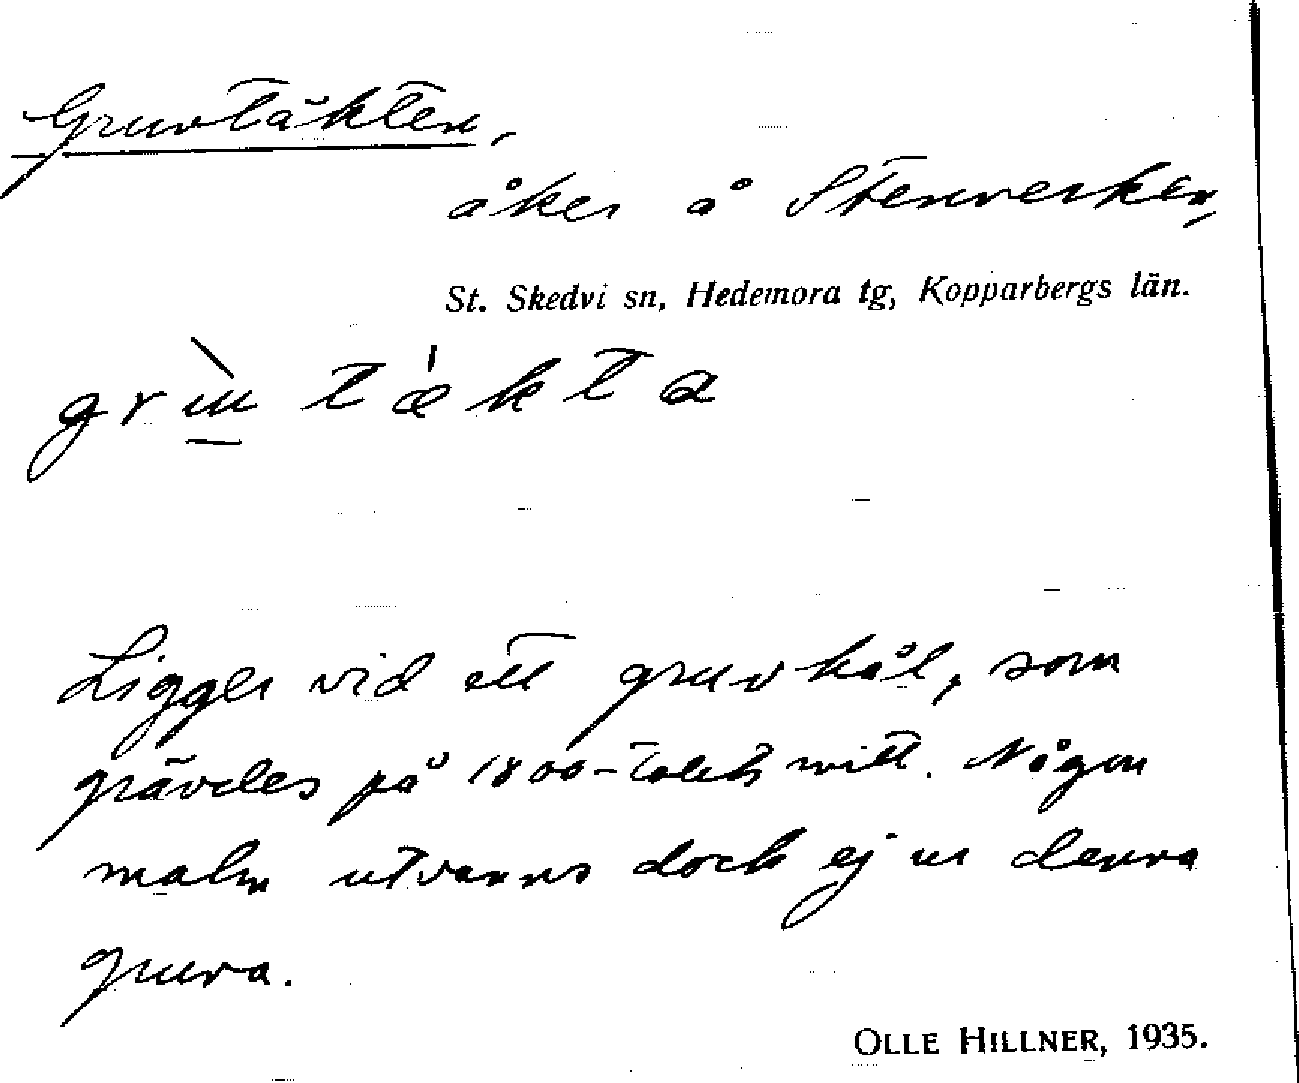 Gruvtäkten,
åker å Stenverken,
St. Skedvi sn, Hedemora tg, Kopparbergs län.
grùu̲ tǽkta
Ligger vid ett gruvhål, som
grävdes på 1800-talets mitt. Någon
malm utvanns dock ej ur denna
gruva.
OLLE HILLNER, 1935.